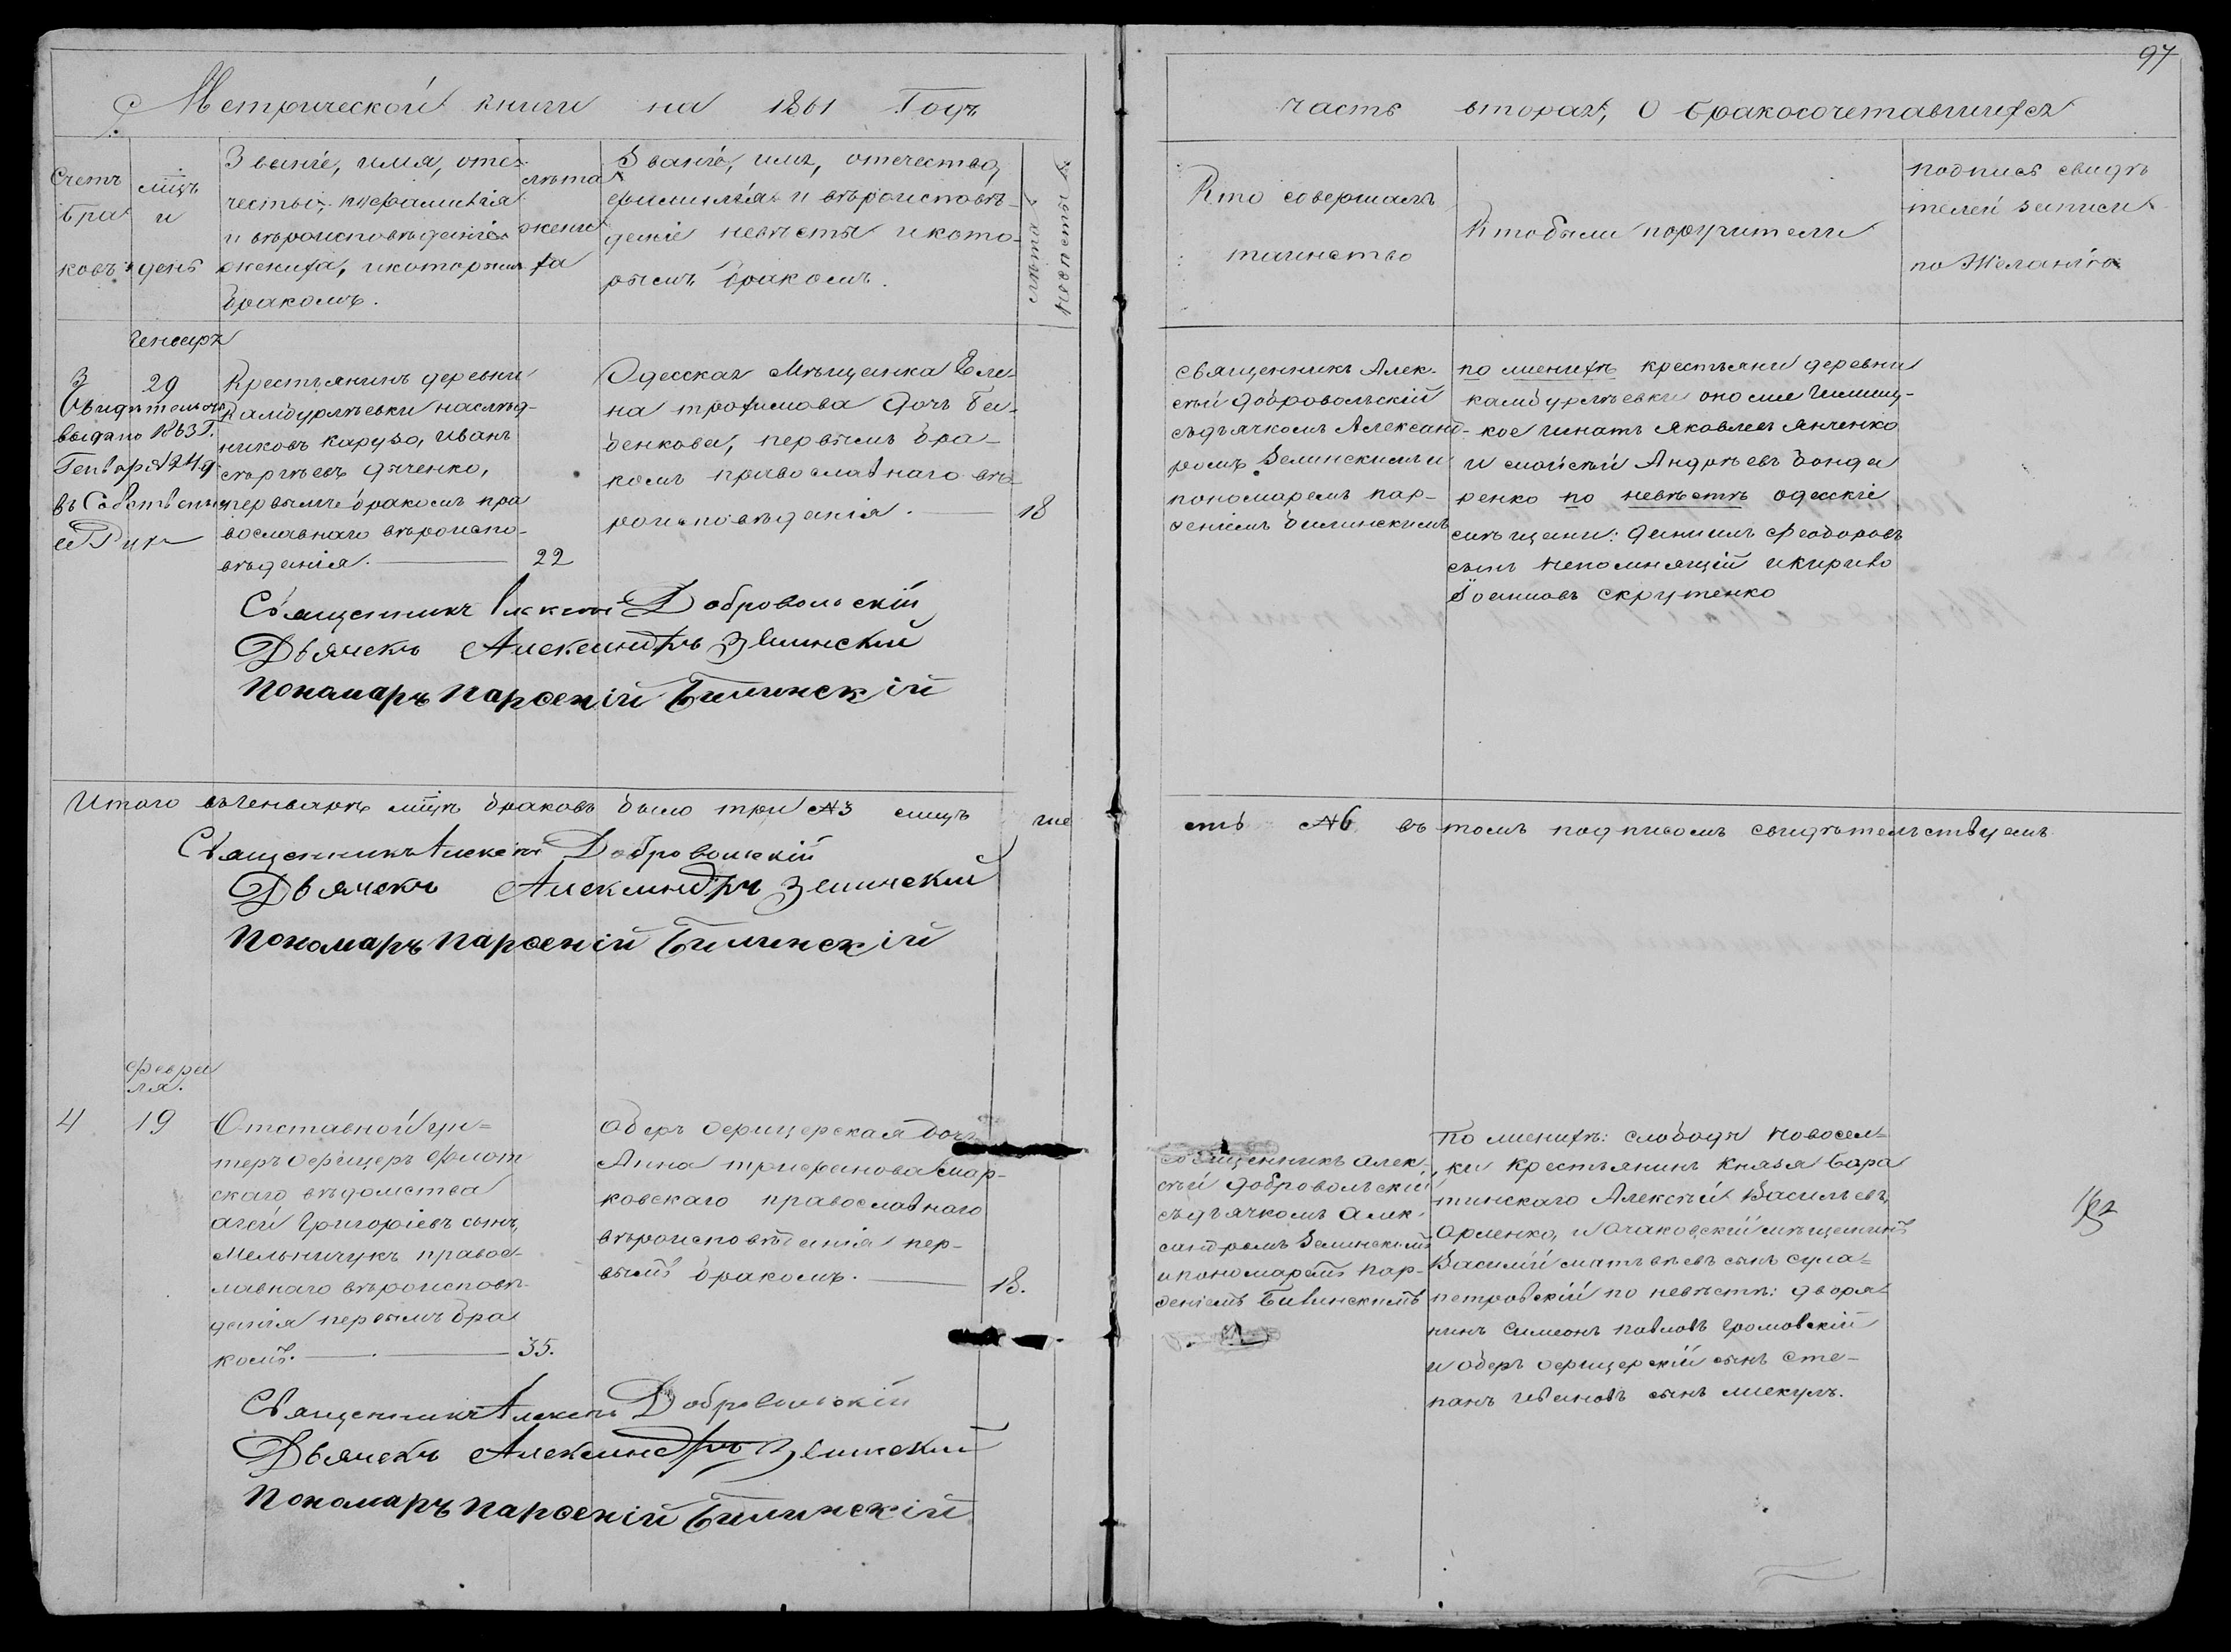 97
Метрической книги на 1861 Годъ
часть вторая, О бракосочетавшихся
Счетъ браковъ
мцъ и день
Званіе, имя, отечество, и фамилія
и вѣроисповѣданіе
жениха, и которымъ
бракомъ.
лѣта
жени
ха
Званіе, имя, отечество,
фамилія и вѣроисповѣ-
деніе невѣсты и кото-
рымъ бракомъ.
лѣта
невѣсты
Кто совершалъ
таинство
Кто были поручители
подпись свидѣ
телей записи
по Желанію
Генваря
3
29
Свидѣтельство
выдано 1863 Г.
Генваря 24 д
Крестьянинъ деревни
Камбурлѣевки наслѣд-
никовъ Карузо, Иванъ
Дяченко,
первымъ бракомъ пра
вославнаго вѣроиспо-
вѣданія.
22
Одесская Мѣщанка Еле-
на трофимова дочь
первымъ бра-
комъ православнаго вѣ-
роисповѣданія.
18
священникъ Алек-
сѣй Добровольскій
съ дьячкомъ Александ-
ромъ Зелинскимъ и
пономаремъ пар-
ѳеніемъ Билинскимъ
по женихѣ крестьяни деревни
камбурлѣевки
Игнатъ Яковлевъ Янченко
и Андрѣевъ бонда
ренко по невѣстѣ одесскіе
мѣщани: Даніилъ Феодоровъ
сынъ Непомнящій и
Іоанновъ Скрутенко
Священникъ Алексѣй Добровольскій
Дьячекъ Александръ Зелинскій
Пономарь Парѳеній Билинскій
Итого въ генварѣ мцѣ браковъ было три №3 лицъ ше
сть №6 въ томъ подписомъ свидѣтельствуемъ
Священникъ Алексѣй Добровольскій
Дьячекъ Александръ Зелинскій
Пономарь Парѳеній Билинскій
Февра
ля.
4
19
Отставной ун=
теръ офицеръ Флот
скаго вѣдомства
Григоріевъ сынъ,
Мельничукъ правос-
лавнаго вѣроисповѣ-
данія первымъ бра
комъ.
35.
Оберъ офицерская дочь
Анна трифанова Мар-
ковскаго православнаго
вѣроисповѣданія пер-
вымъ бракомъ.
18.
священникъ Алек-
сѣй Добровольскій
съ дьячкомъ Алек-
сандромъ Зелинскимъ
и пономаремъ Пар-
ѳеніемъ Билинскимъ
По женихѣ: слободы Новосел-
ки Крестьянинъ Князя Бара
тинскаго Алексѣй Васильевъ,
и Очаковскій мѣщанинъ
Василій матвѣевъ сынъ
петровскій по невѣстѣ: дворя
нинъ Симеонъ Павловъ Громовскій
и оберъ офицерскій сынъ Сте-
панъ Ивановъ сынъ
Священникъ Алексѣй Добровольскій
Дьячекъ Александръ Зелинскій
Пономарь Парѳеній Билинскій